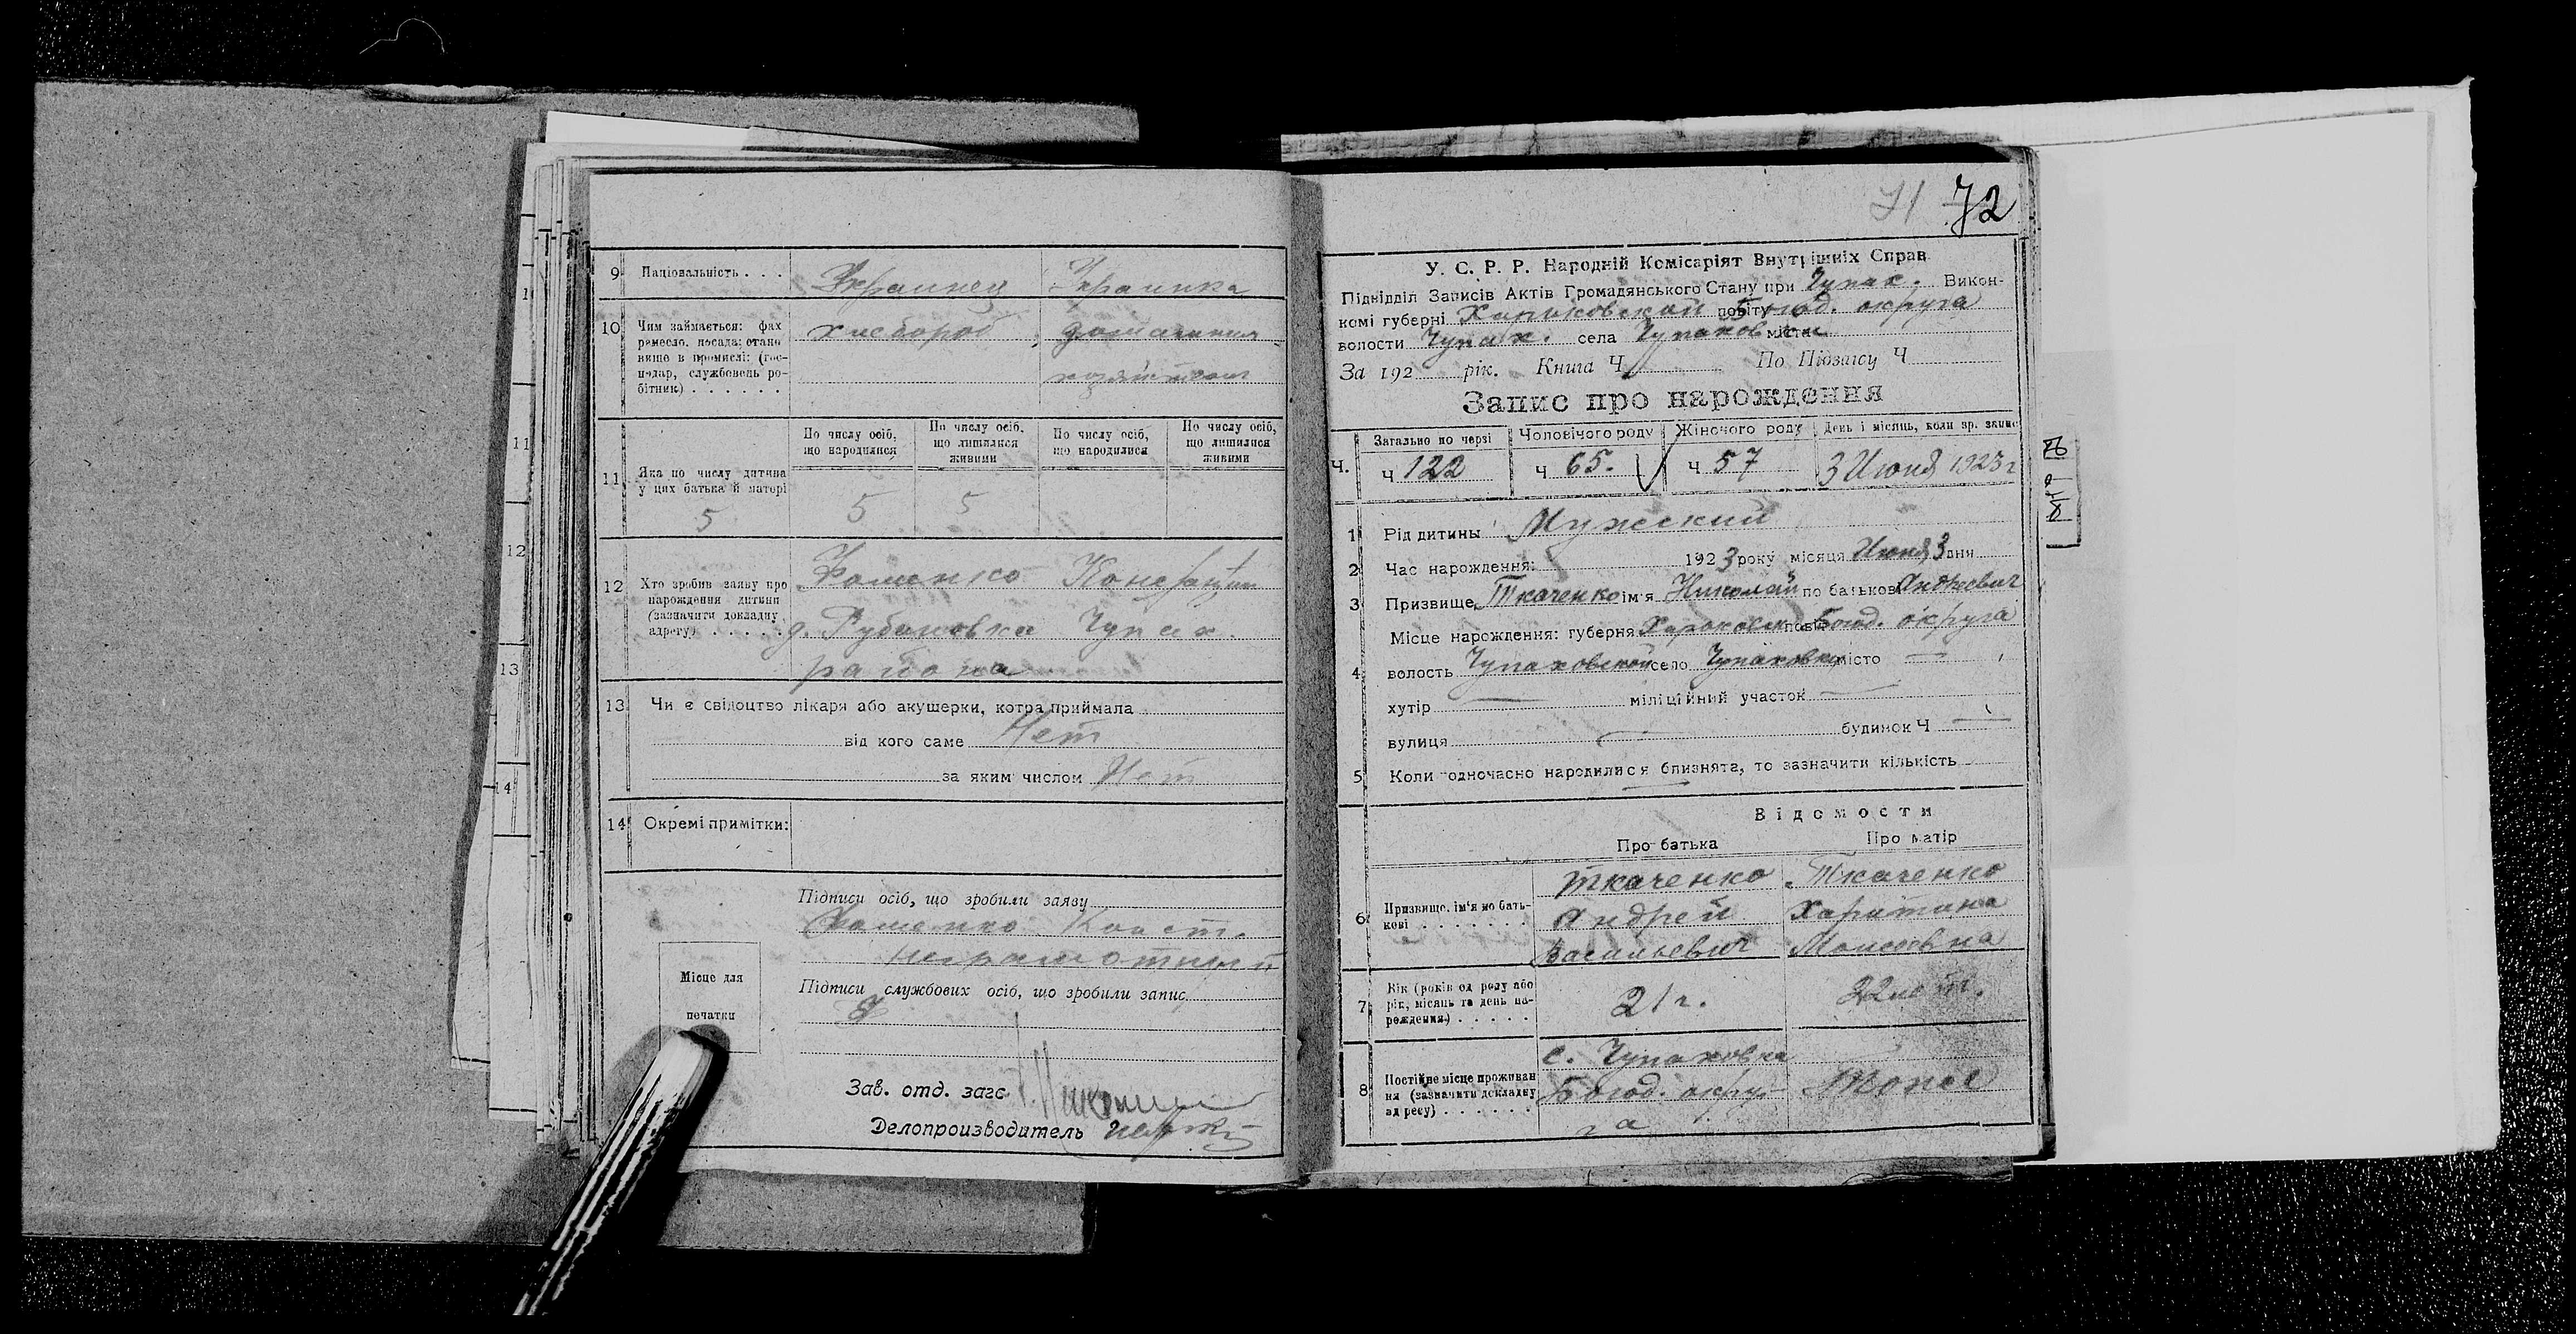 9 Національність . . . Украинец Украинка
10 Чим займається: фах
ремесло, посада; стано
вище в промислі: (гос-
подар, службовець ро-
бітник) . . . . . .
хлебороб домашним
хозяйством
11 Яка по числу дитина
у цих батька й матері
5
По числу осіб,
що народилися
5
По числу осіб,
що лишилися
живими
5
По числу осіб,
що народилися
По числу осіб,
що лишилися
живими
12 Хто зробив заяву про
нарождення дитини
(зазначити докладну
адресу) . . . . .
Фоменко Констатин
д. Рубановка Чупах.
района
13 Чи є свідоцтво лікаря або акушерки, котра приймала
від кого саме Нет
за яким числом Нет
14 Окремі примітки:
Підписи осіб, що зробили заяву
Фоменко Конст.
неграмотный
Місце для
печатки
Підписи службових осіб, що зробили запис
Зав. отд. загс
Делопроизводитель
11
12
13
14
71 72
У. С. Р. Р. Народній Комісаріят Внутрішніх Справ
Підвідділ Записів Актів Громадянського Стану при Чупах. Викон-
комі губерні Харьковской повіту Богод. округа
волости Чупах. села Чупаховки міста
За 192 рік. Книга Ч По Підзагсу Ч
Запис про нарождення
Ч. Загально по черзі Чоловічого роду Жіночого роду День і місяць, коли зр. запис
Ч 122 Ч 65. Ч 57 3 Июня 1923 г
1 Рід дитины Мужский
2 Час нарождення: 1923 року місяця Июня 3 дня
3 Призвище Ткаченко ім'я Николай по батькові Андреевич
4 Місце нарождення: губерня Харьковск. повіт Богод. округа
волость Чупаховской село Чупаховка місто —
хутір — міліційний участок —
вулиця — будинок Ч —
5 Коли одночасно народилися близнята, то зазначити кількість —
Відомости
Про батька Про матір
6 Призвище, ім'я по бать-
кові . . . . . . .
Ткаченко Ткаченко
Андрей Харитина
Васильевич Моисеевна
7 Вік (років од роду або
рік, місяць та день на-
рождення) . . . . .
21 г. 22 лет.
8 Постійне місце проживан
ня (зазначити докладну
адресу) . . . . . .
с. Чупаховка
Богод. окру-
га
Тоже